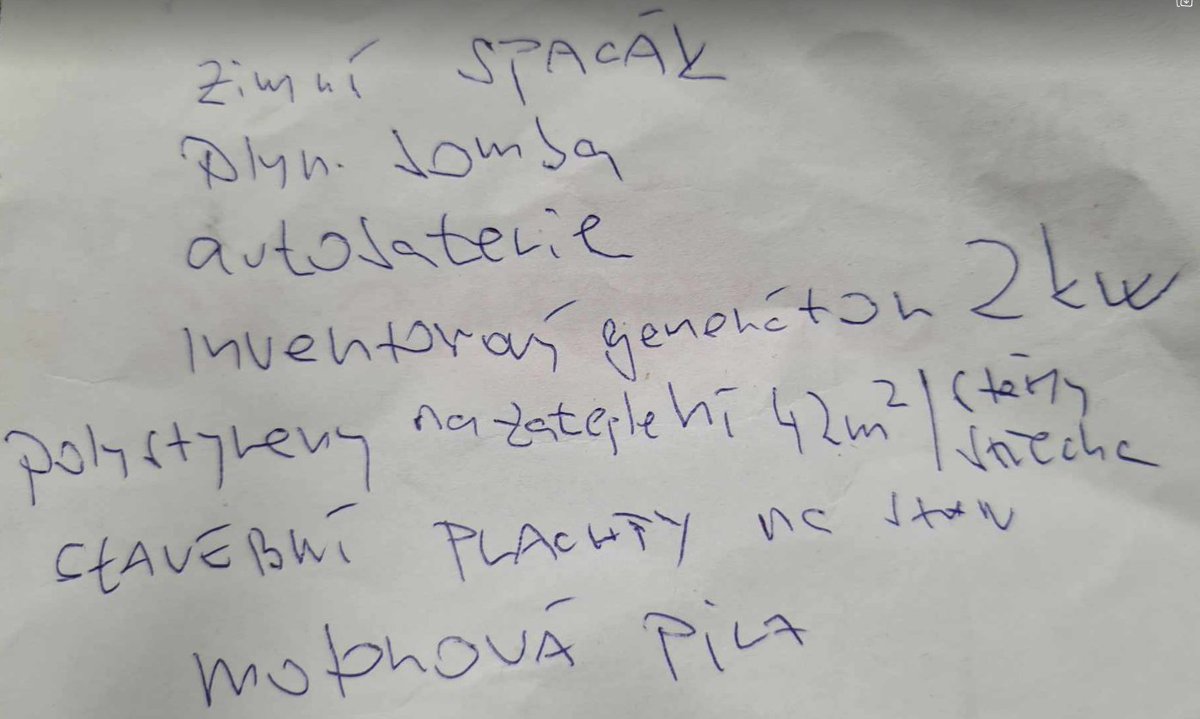 zimní SPACÁK
Plyn. bomba
autobaterie
inventorový generátor 2kw
polystyreny na zateplení 42m²/stěny
střecha
STAVEBNÍ PLACHTY na stan
motorová PiLA